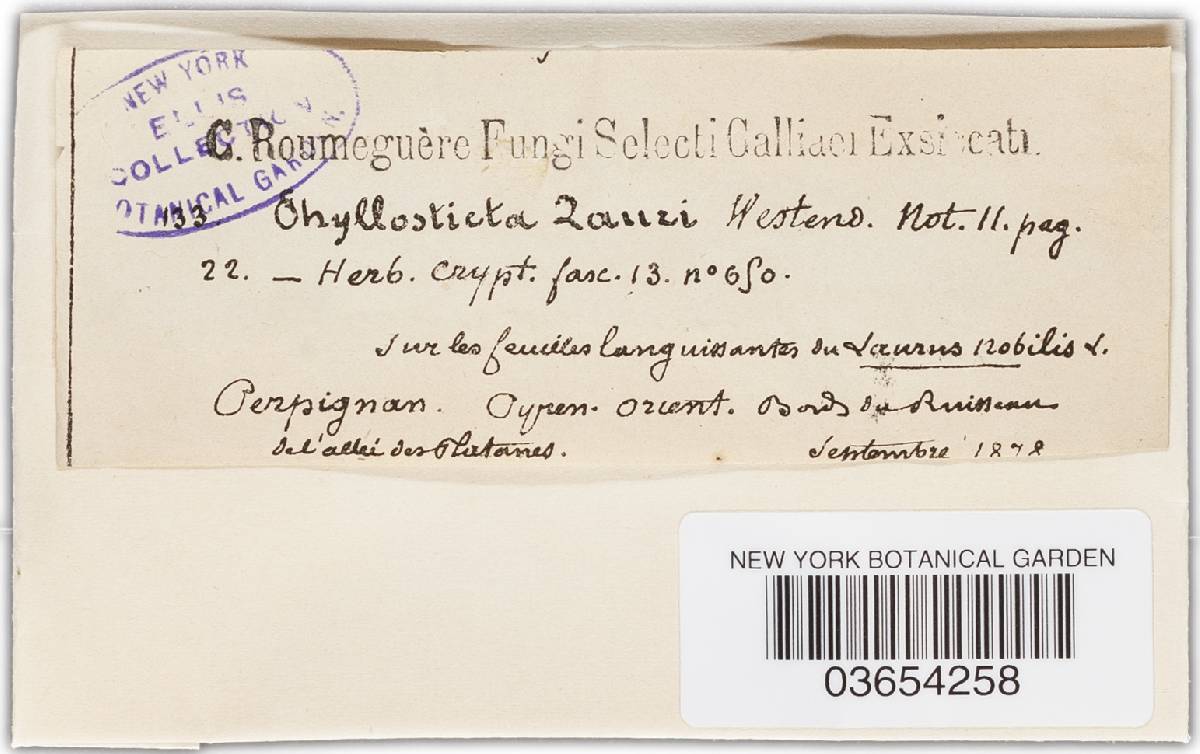 NEW YORK
ELLIS
COLLECTION
BOTANICAL GARDEN
C. Roumeguère Fungi Selecti Galliaei Exsiccati.
133. Phyllosticta Lauri Westend. Not. 11. pag.
22. — Herb. Crypt. fasc. 13. nº 650.
sur les feuilles languissantes du Laurus nobilis L.
Perpignan. Pyren. orient. Bords du Ruisseau
de l'allée des Platanes. Septembre 1878
NEW YORK BOTANICAL GARDEN
03654258